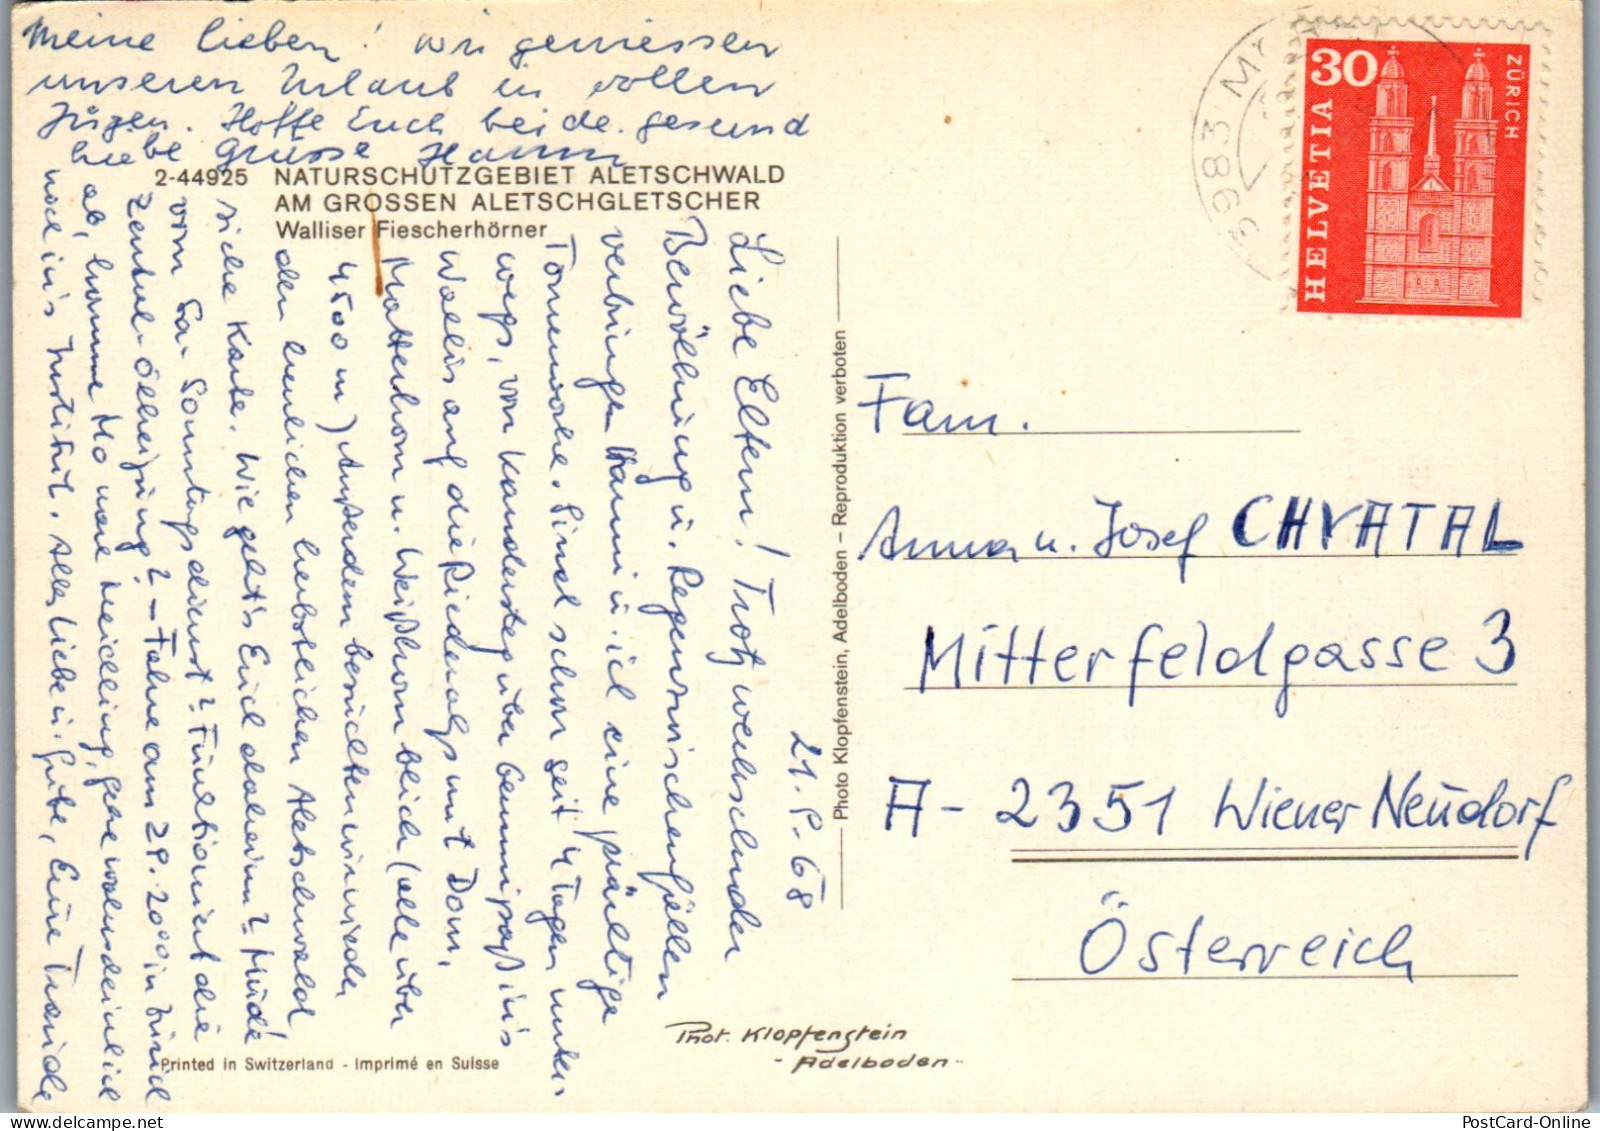 Meine Lieben! wir geniessen
unseren Urlaub in vollen
Zügen. Hoffe Euch beide gesund
Liebe Grüsse Hanni
2-44925 NATURSCHUTZGEBIET ALETSCHWALD
AM GROSSEN ALETSCHGLETSCHER
Walliser Fiescherhörner
21. 9. 68
Liebe Eltern! Trotz wechselnder
Bewölkung u. Regenzwischenfällen
verbringen Hanni u. ich eine prächtige
Tourenwoche. Sind schon seit 4 Tagen unter-
wegs, von Kandersteg über Gemmipaß ins
Wallis auf die Riederalp mit Dom,
Matterhorn u. Weißhorn blick (alle über
4500 m) Außerdem besichten wir wieder
den herrlichen herbstlichen Aletschwald
siehe Karte. Wie geht's Euch daheim? Müde
vom Sonntagsdienst? Funktioniert die
Zentralölheizung? – Fahre am 29. 20°° in Zürich
ab, komme Mo nach Meidling, gehe wahrscheinlich
noch ins Institut. Alles Liebe u. Gute, Eure
Photo Klopfenstein, Adelboden – Reproduktion verboten
Printed in Switzerland - Imprimé en Suisse
Phot. Klopfenstein
- Adelboden -
HELVETIA
30
ZÜRICH
3983
Fam.
Anna u. Josef CHVATAL
Mitterfeldgasse 3
A - 2351 Wiener Neudorf
Österreich
PostCard-Online.com